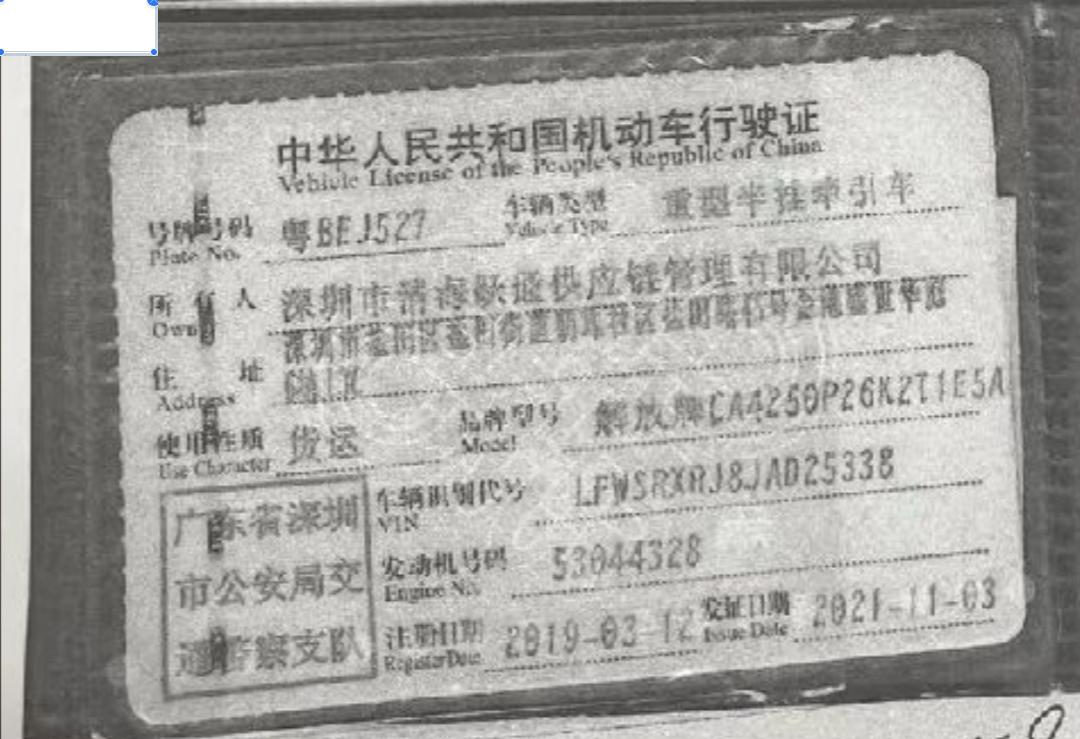 中华人民共和国机动车行驶证
Vehicle License of the People's Republic of China
号牌号码 粤BEJ527 车辆类型 重型半挂牵引车
Plate No. Vehicle Type
所有人 深圳市清海欣通供应链管理有限公司
Owner
深圳市盐田区盐田街道明珠社区
住址
Address
使用性质 货运 品牌型号 解放牌CA4250P26K2T1E5A
Use Character Model
广东省深圳 车辆识别代号 LFWSRXRJ8JAD25338
VIN
市公安局交 发动机号码 53044328
Engine No.
通警察支队 注册日期 2019-03-12 发证日期 2021-11-03
Register Date Issue Date